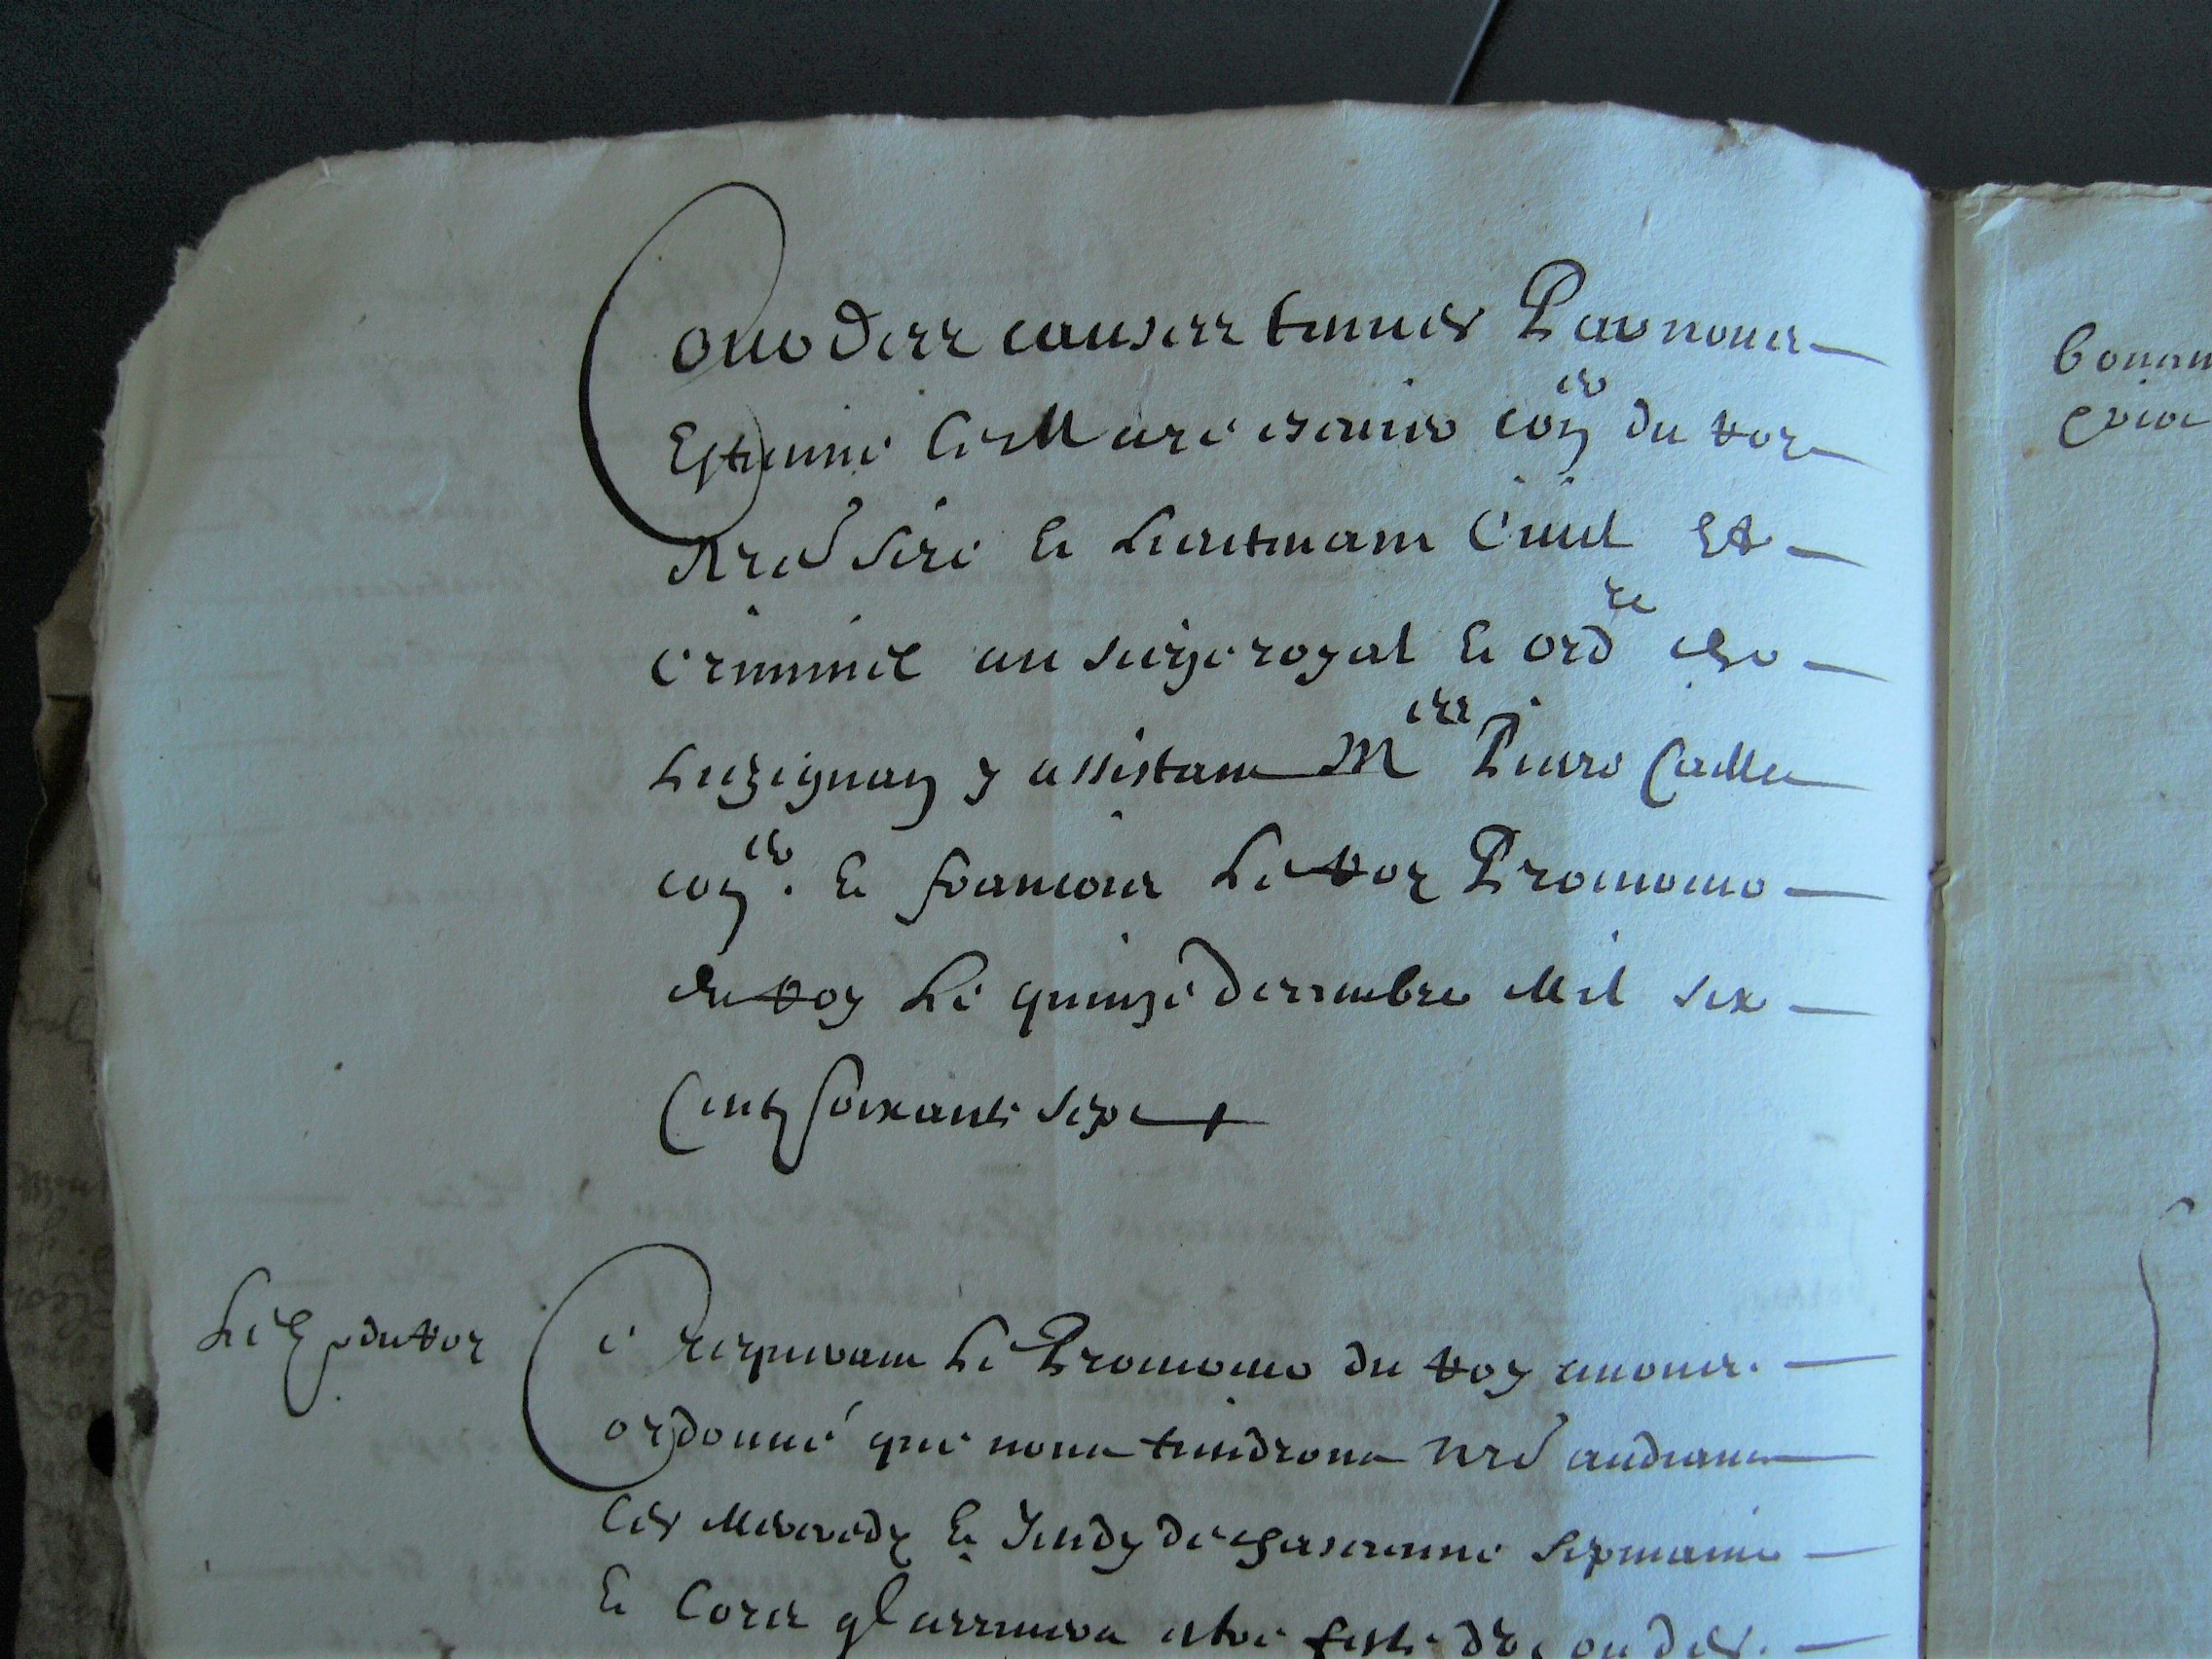 Cour des causes tenues Par nous
Estienne le Mareschaux con.er du roy
nre sire et Lieutenant Civil Et
Criminel au siege royal et ord.re de
Luzignan y assistans M.es Pierre Cailler
con.er et francois Le roy Procureur
du roy Le quinze decembre Mil six
Centz soixante sept
Le pr du roy
Ce requerant Le Procureur du roy avons
ordonné que nous tiendrons nre audiance
les Mercredy et Jeudy de chascunne sepmaine
et Lors ql arrivera estre feste de ou des